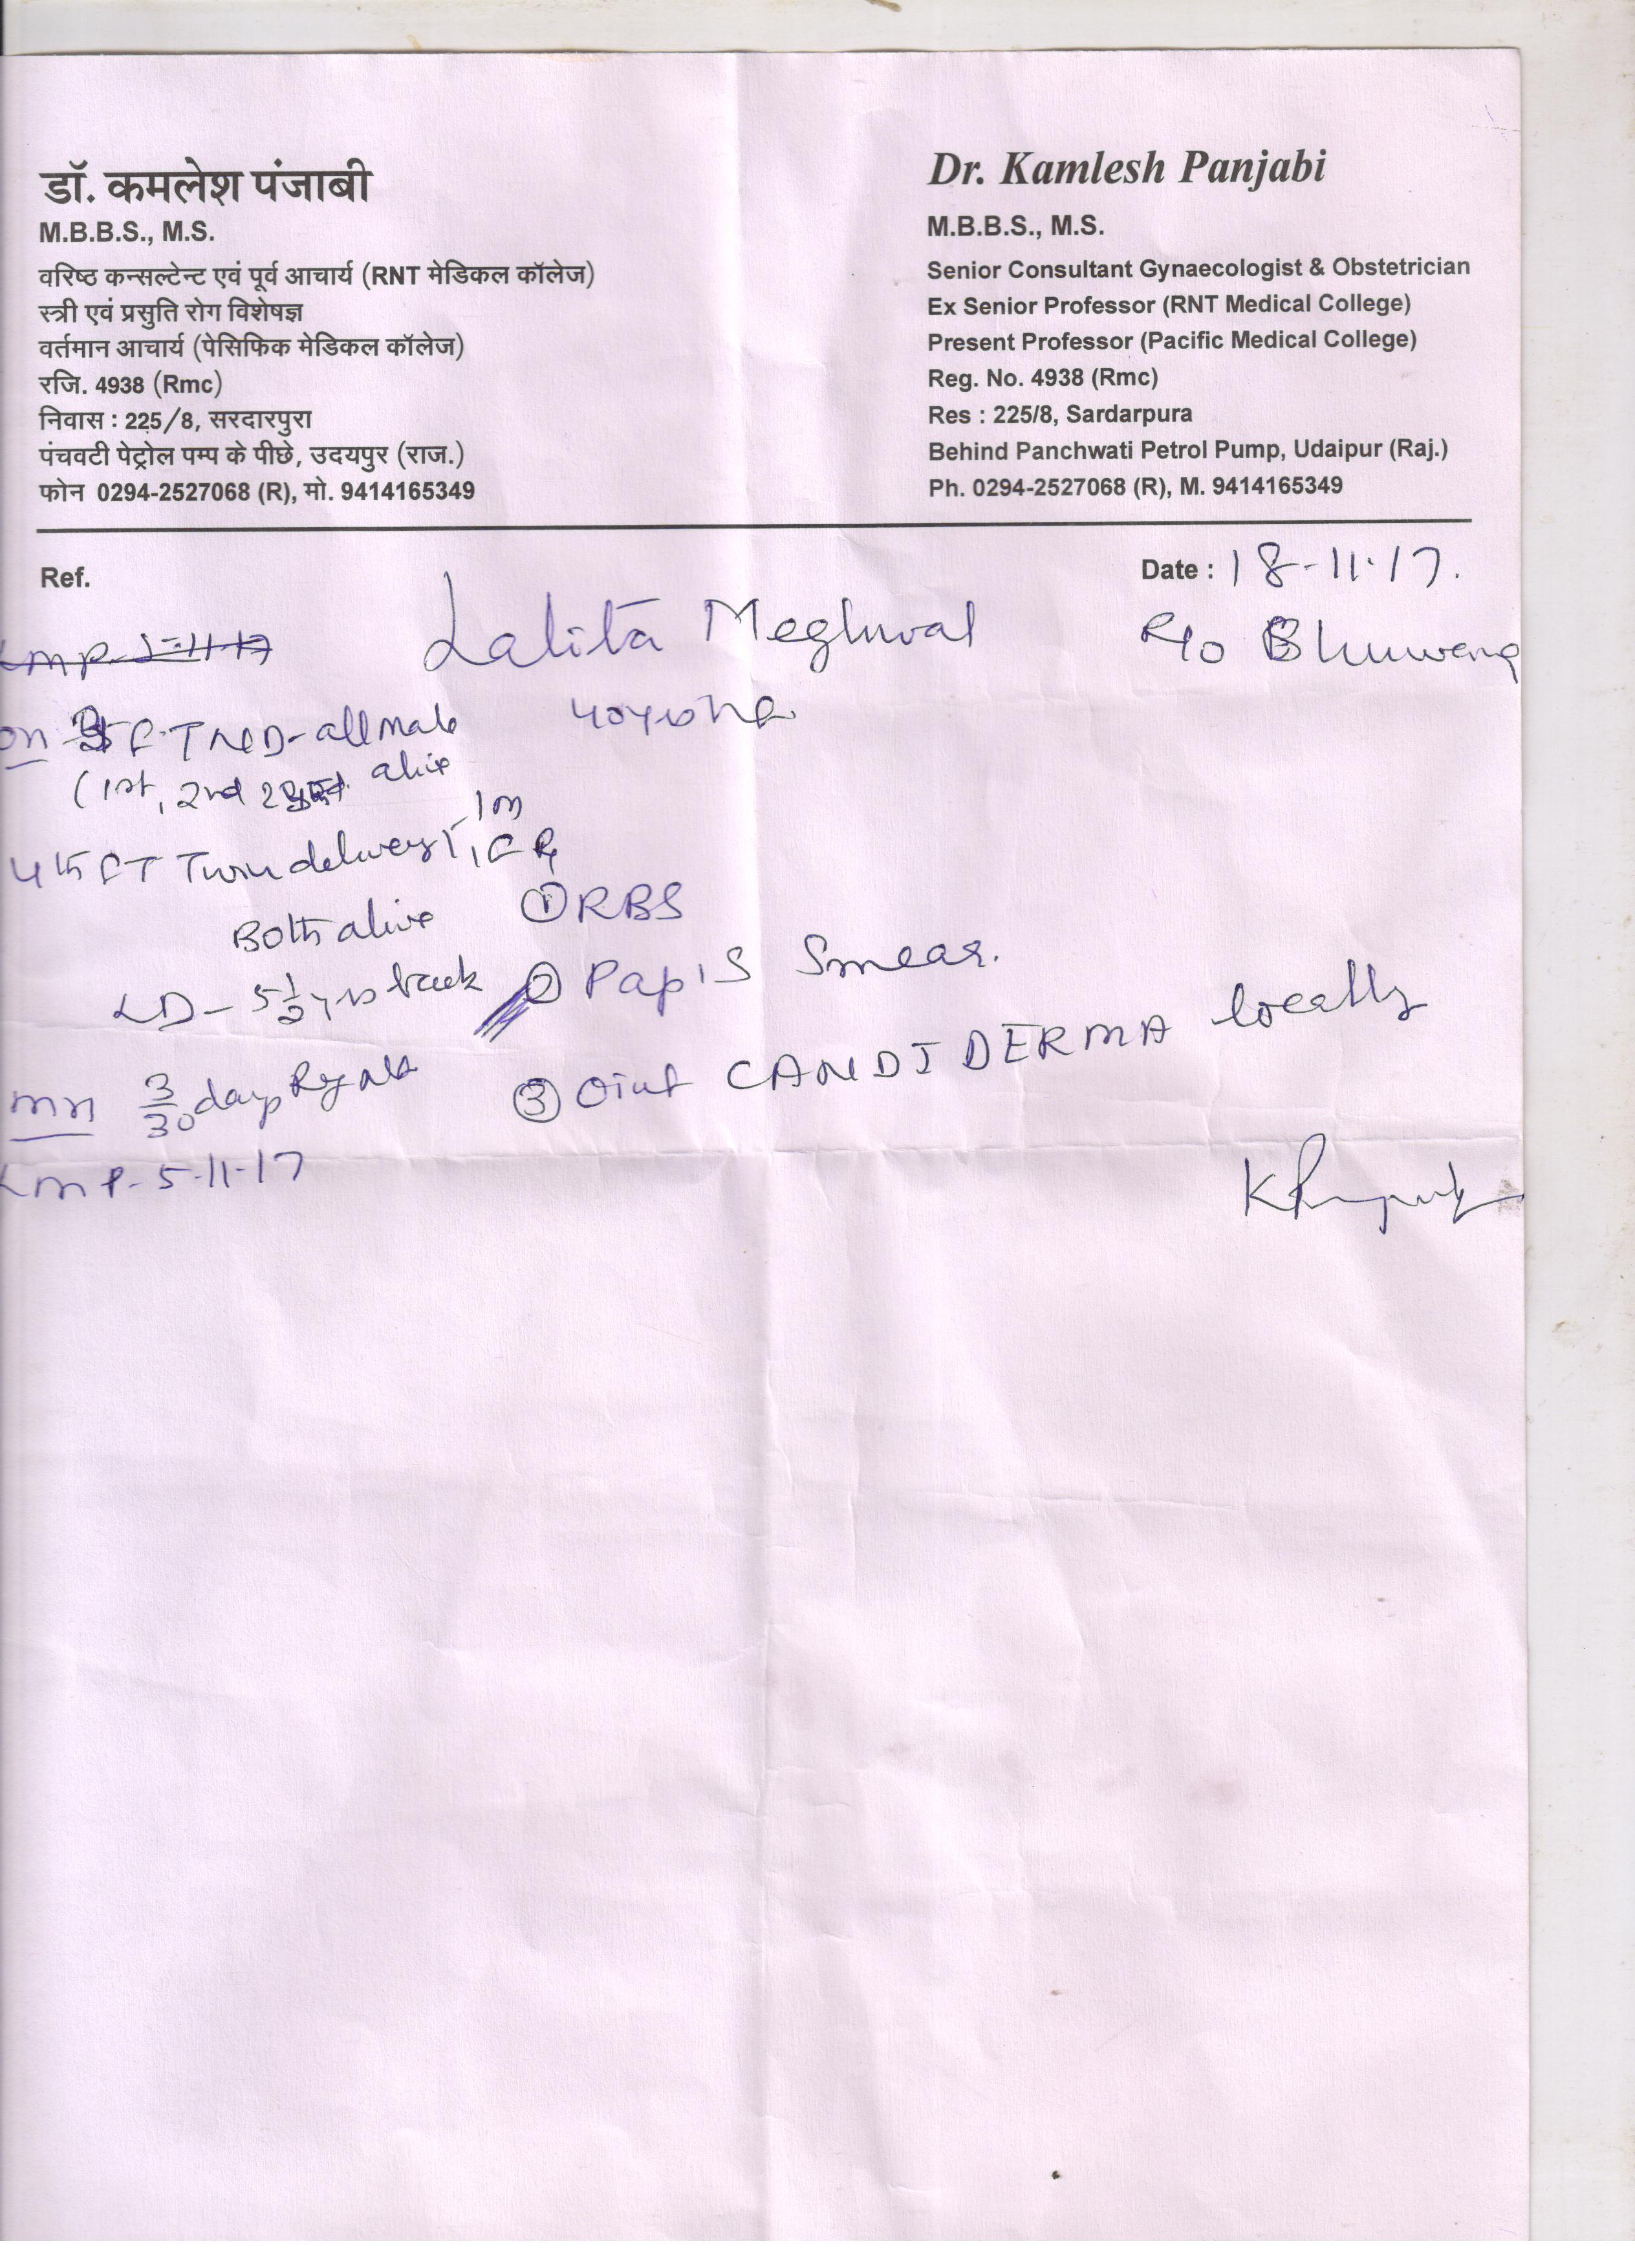 डॉ. कमलेश पंजाबी
M.B.B.S., M.S.
वरिष्ठ कन्सल्टेन्ट एवं पूर्व आचार्य (RNT मेडिकल कॉलेज)
स्त्री एवं प्रसुति रोग विशेषज्ञ
वर्तमान आचार्य (पेसिफिक मेडिकल कॉलेज)
रजि. 4938 (Rmc)
निवास : 225/8, सरदारपुरा
पंचवटी पेट्रोल पम्प के पीछे, उदयपुर (राज.)
फोन 0294-2527068 (R), मो. 9414165349
Dr. Kamlesh Panjabi
M.B.B.S., M.S.
Senior Consultant Gynaecologist & Obstetrician
Ex Senior Professor (RNT Medical College)
Present Professor (Pacific Medical College)
Reg. No. 4938 (Rmc)
Res : 225/8, Sardarpura
Behind Panchwati Petrol Pump, Udaipur (Raj.)
Ph. 0294-2527068 (R), M. 9414165349
Ref.
Date : 18-11-17.
Lalita Meghwal
R/o Bhuwana
LMP-5-11-17
FTND-all male
(1st, 2nd alive
4th FT Twin delivery 1m
Both alive
LD-5½ yrs back
MH 3/30 days Regular
LMP-5-11-17
① RBS
② Pap's Smear.
③ Oint CANDIDERMA locally